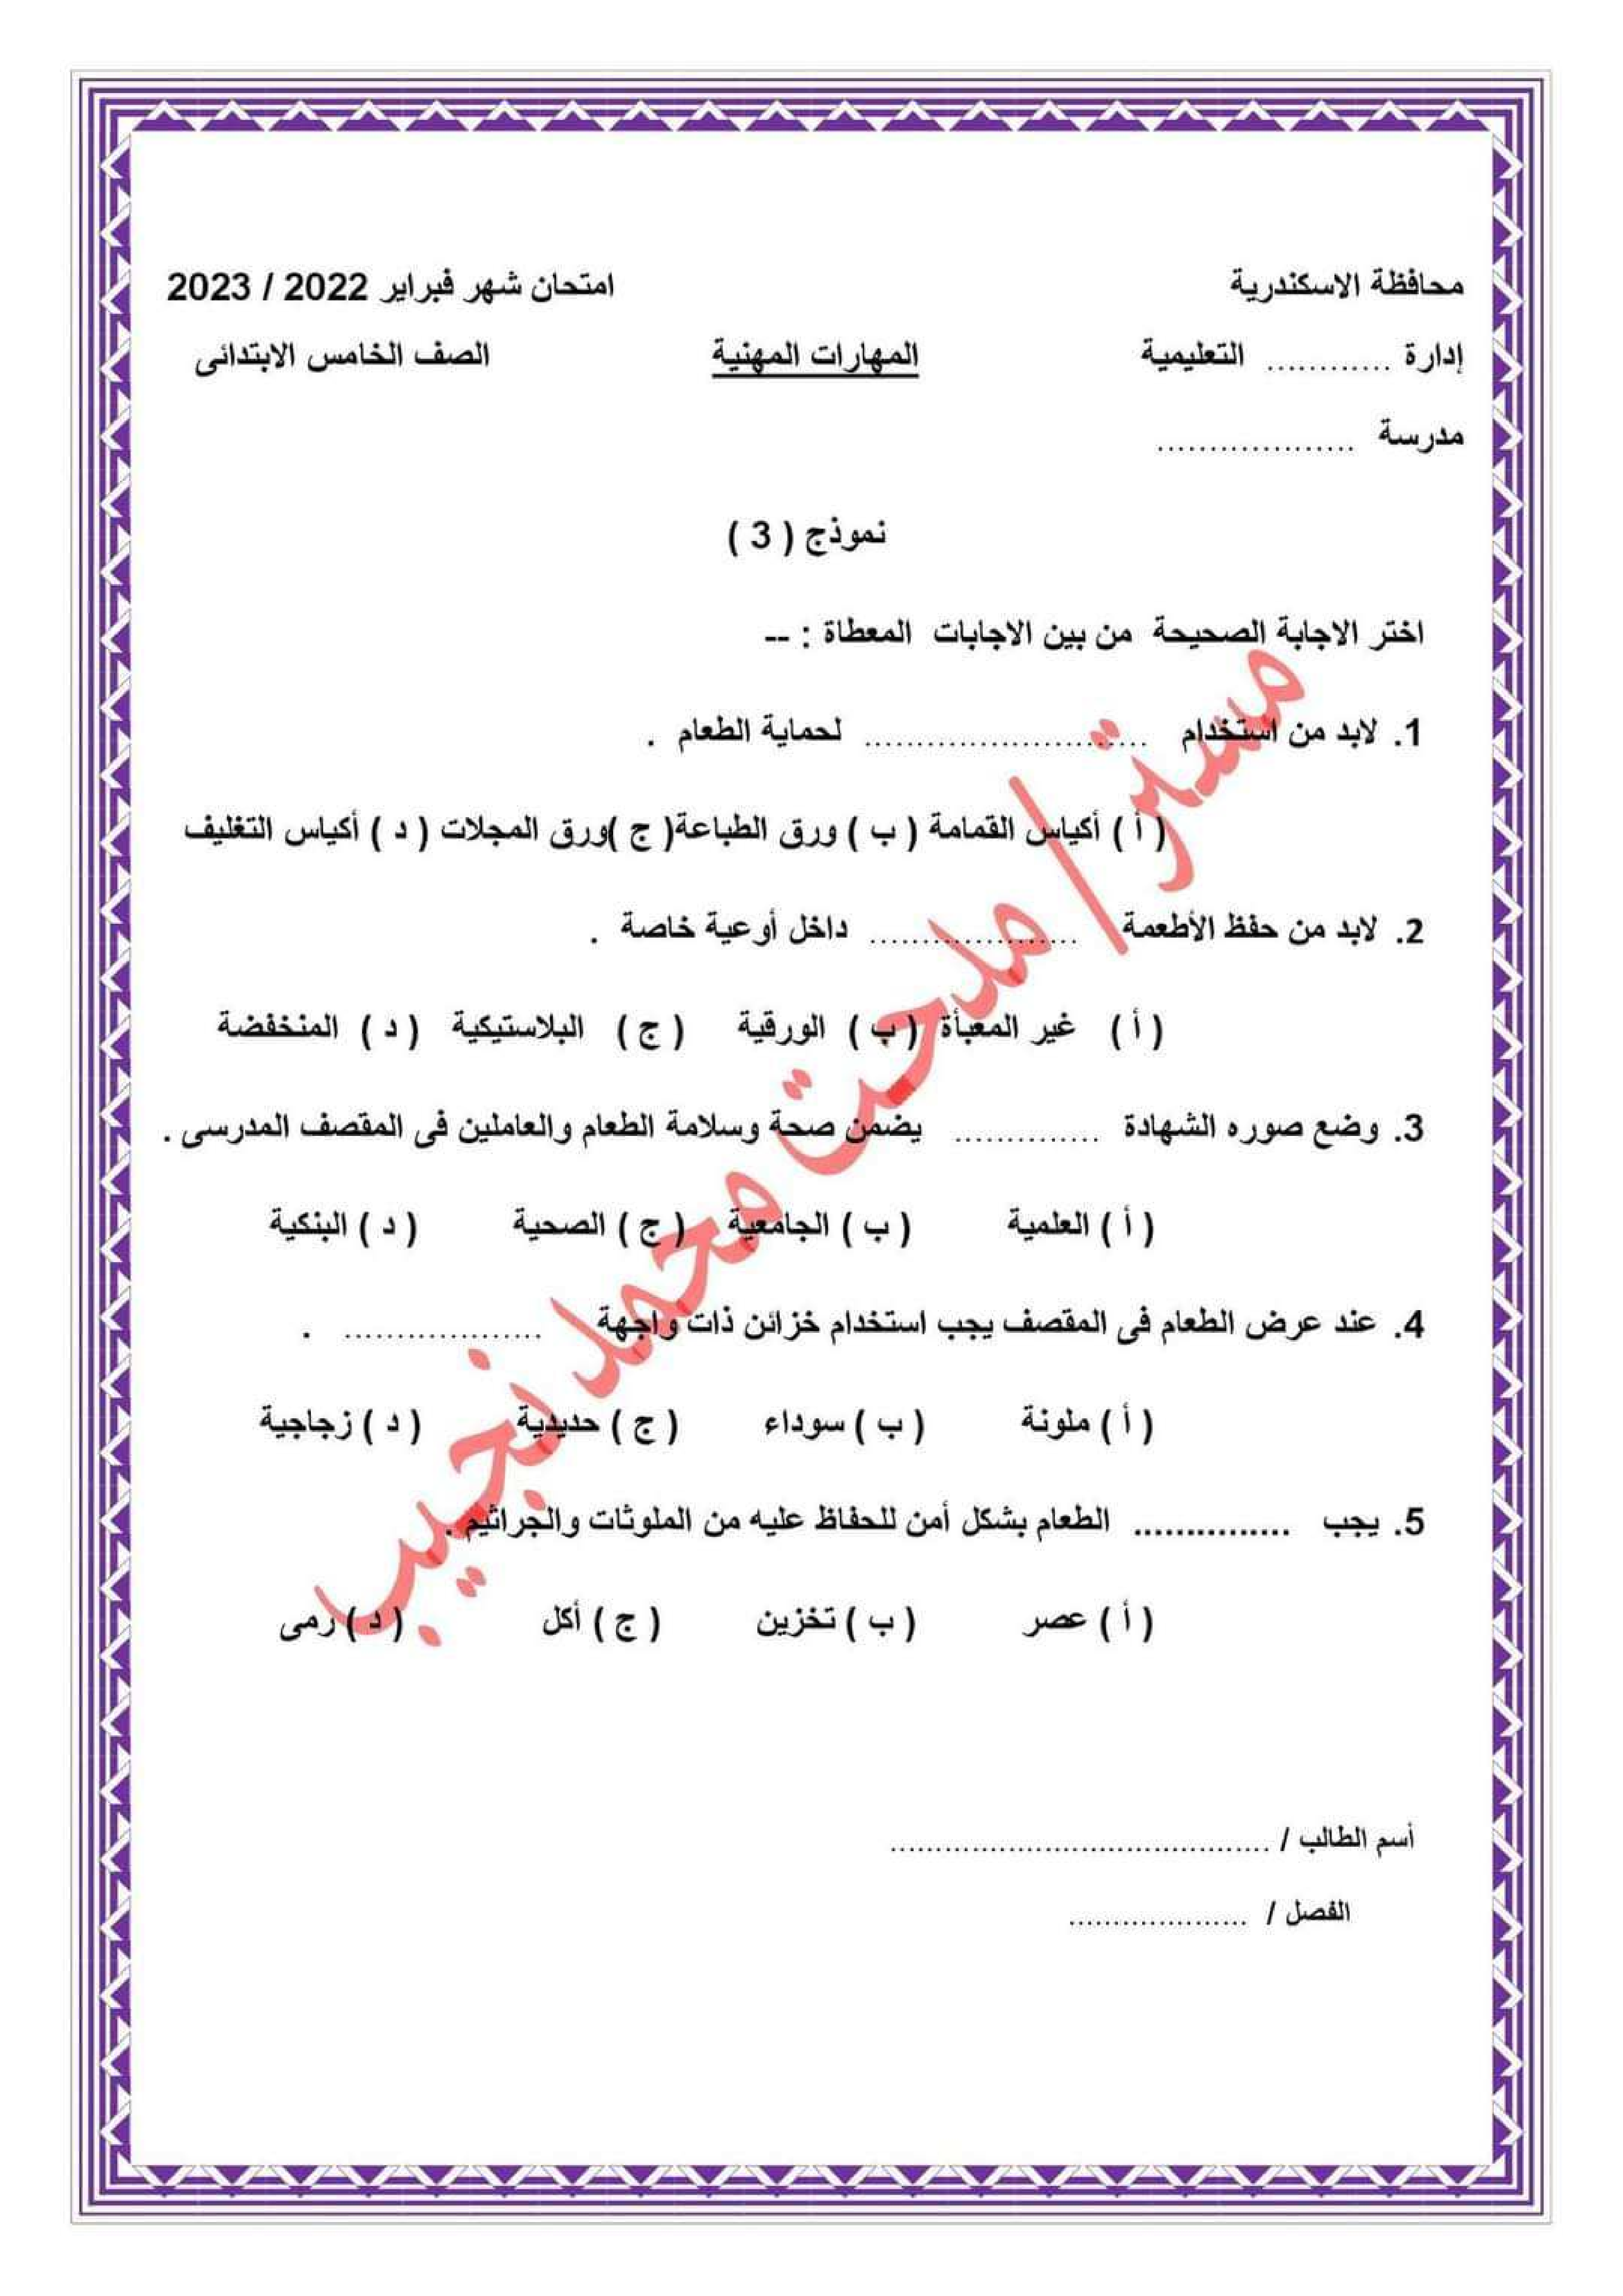 محافظة الاسكندرية امتحان شهر فبراير 2022 / 2023
إدارة ............ التعليمية المهارات المهنية الصف الخامس الابتدائى
مدرسة ...................
نموذج ( 3 )
اختر الاجابة الصحيحة من بين الاجابات المعطاة : --
1. لابد من استخدام ........................... لحماية الطعام .
( أ ) أكياس القمامة ( ب ) ورق الطباعة( ج )ورق المجلات ( د ) أكياس التغليف
2. لابد من حفظ الأطعمة .................... داخل أوعية خاصة .
( أ ) غير المعبأة ( ب ) الورقية ( ج ) البلاستيكية ( د ) المنخفضة
3. وضع صوره الشهادة .............. يضمن صحة وسلامة الطعام والعاملين فى المقصف المدرسى .
( أ ) العلمية ( ب ) الجامعية ( ج ) الصحية ( د ) البنكية
4. عند عرض الطعام فى المقصف يجب استخدام خزائن ذات واجهة ................... .
( أ ) ملونة ( ب ) سوداء ( ج ) حديدية ( د ) زجاجية
5. يجب ............... الطعام بشكل أمن للحفاظ عليه من الملوثات والجراثيم .
( أ ) عصر ( ب ) تخزين ( ج ) أكل ( د ) رمى
أسم الطالب / ..........................................
الفصل / ....................
مستر/ مدحت محمد نجيب